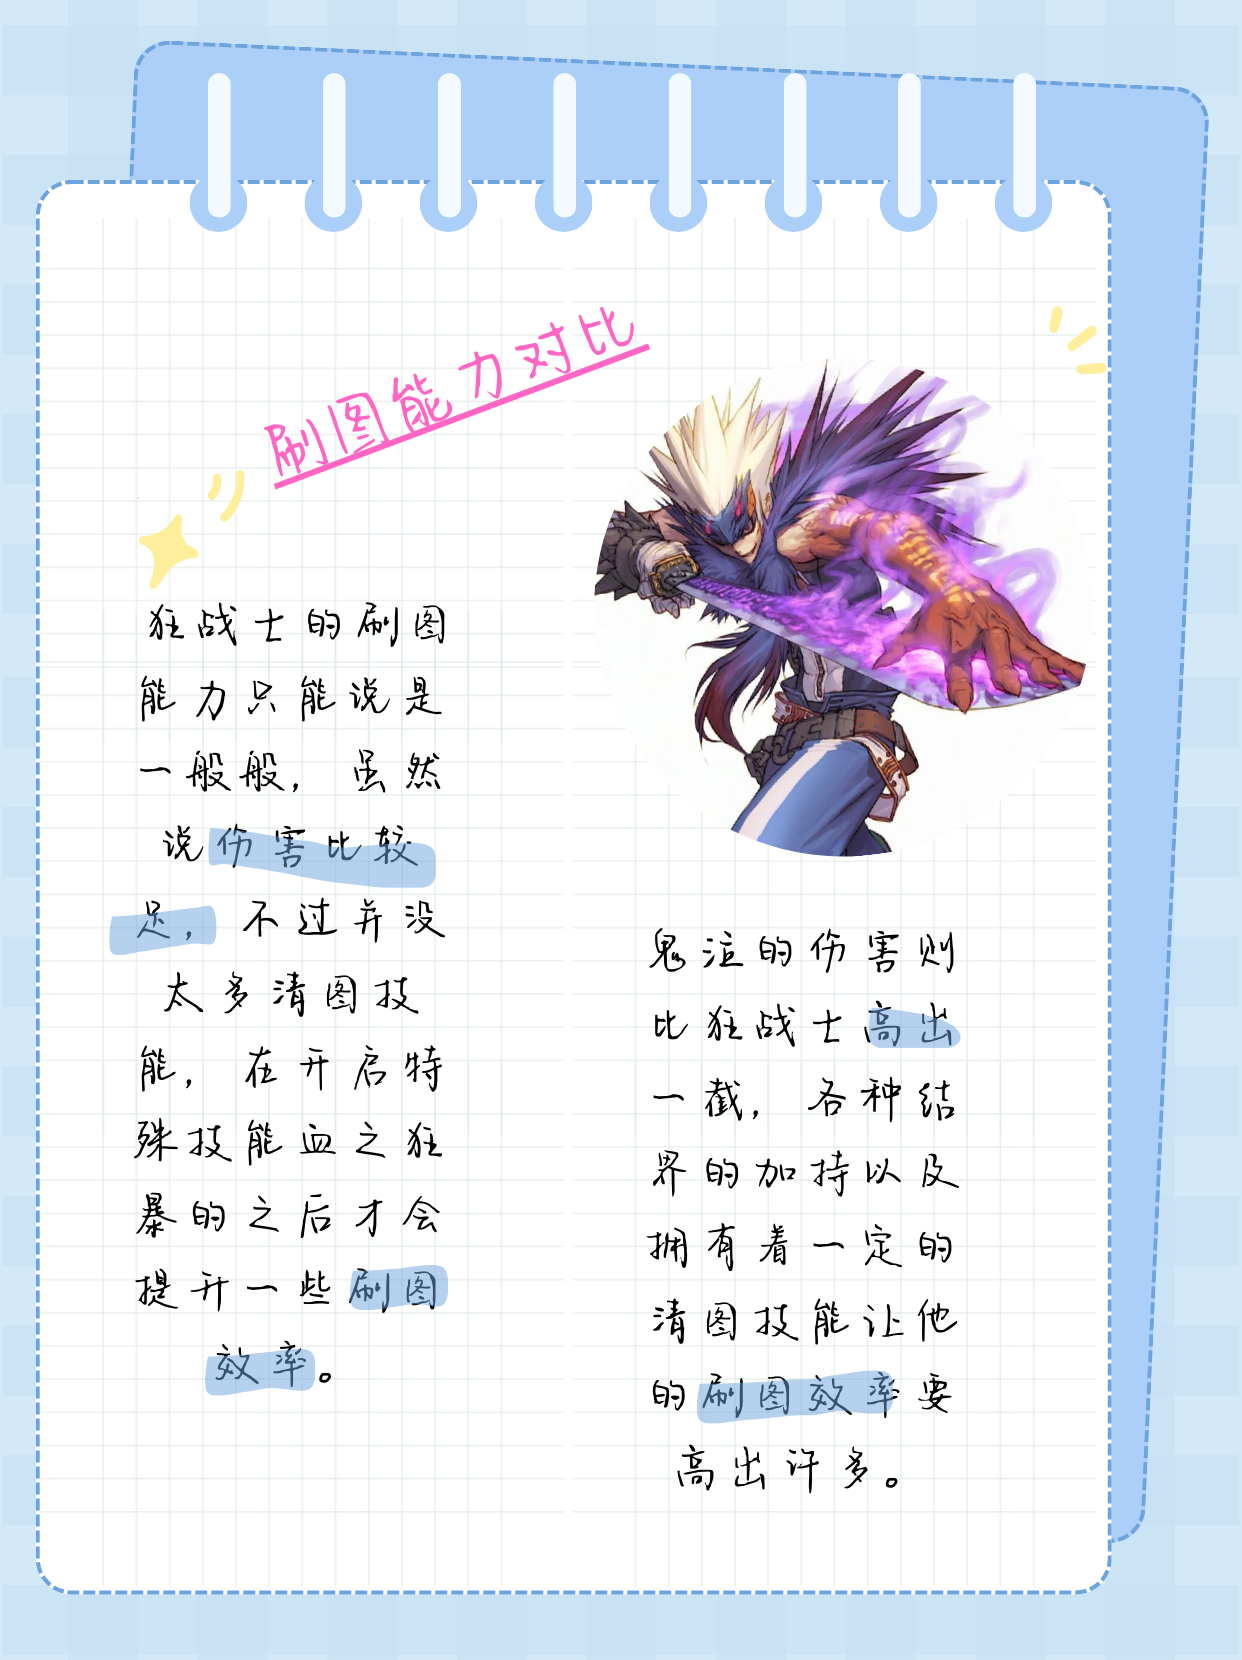 刷图能力对比
狂战士的刷图
能力只能说是
一般般，虽然
说伤害比较
足，不过并没
太多清图技
能，在开启特
殊技能血之狂
暴的之后才会
提升一些刷图
效率。
鬼泣的伤害则
比狂战士高出
一截，各种结
界的加持以及
拥有着一定的
清图技能让他
的刷图效率要
高出许多。